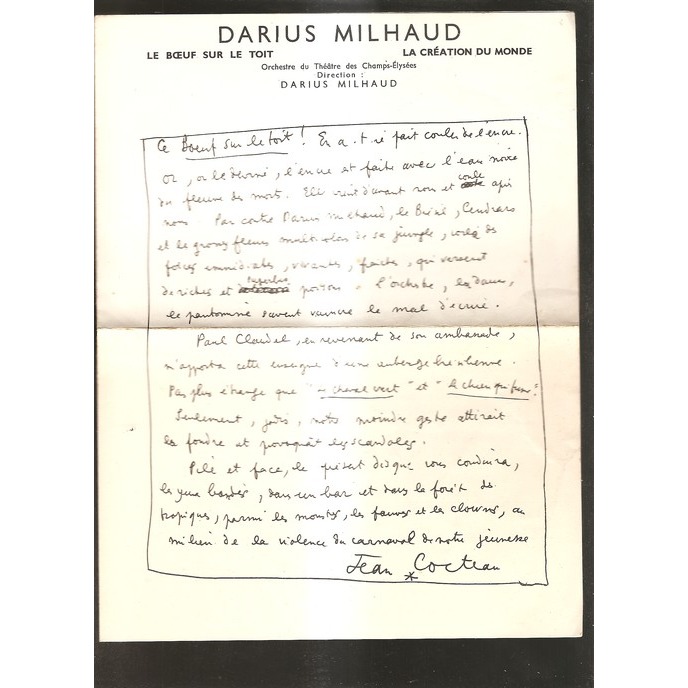 DARIUS MILHAUD
LE BŒUF SUR LE TOIT LA CRÉATION DU MONDE
Orchestre du Théâtre des Champs-Élysées
Direction :
DARIUS MILHAUD
Ce Bœuf sur le toit ! En a-t-il fait couler de l'encre.
Or, , l'encre est faite avec l'eau noire
du fleuve des morts. Elle vient d'avant nous et coule après
nous. Par contre Darius Milhaud, le Brésil, Cendrars
et les grosses fleurs de sa jungle, voilà des
forces immédiates, vivantes, fraîches, qui versent
de riches et superbes poisons. L'orchestre, la danse,
la pantomime savent vaincre le mal d'écrire.
Paul Claudel, en revenant de son ambassade,
m'apporta cette enseigne d'une auberge brésilienne.
Pas plus étrange que "le cheval vert" et "le chien qui fume".
Seulement, jadis, notre moindre geste attirait
la foudre et provoquait les scandales.
Pile et face, le présent disque vous conduira,
les yeux bandés, dans un bar et dans la forêt des
tropiques, parmi les monstres, les fauves et les clowns, au
milieu de la violence du carnaval de notre jeunesse
Jean Cocteau
*